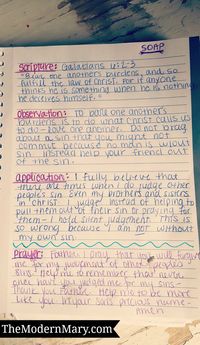 SOAP
Scripture: Galatians 6:2,3
"Bear one another's burdens, and so
fulfill the law of Christ. For if anyone
thinks he is something when he is nothing
he deceives himself."
Observation: To build one another's
burdens is to do what Christ calls us
to do - love one another. Do not brag
about a sin that you might not
commit because no man is w/out
sin. Instead help your friend out
of the sin.
Application: I fully believe that
there are times when I do judge other
people's sin, even my brothers and sisters
in Christ. I judge instead of helping to
pull them out of their sin or praying for
them - I hold silent judgement. This is
so wrong because I am not without
my own sin.
Prayer: Father, I pray that you will forgive
me for my judgement of other people's
sins. Help me to remember that never
once have you judged me for my sins -
Thank you Father. Help me to be more
like you. In your sons precious name
Amen
TheModernMary.com